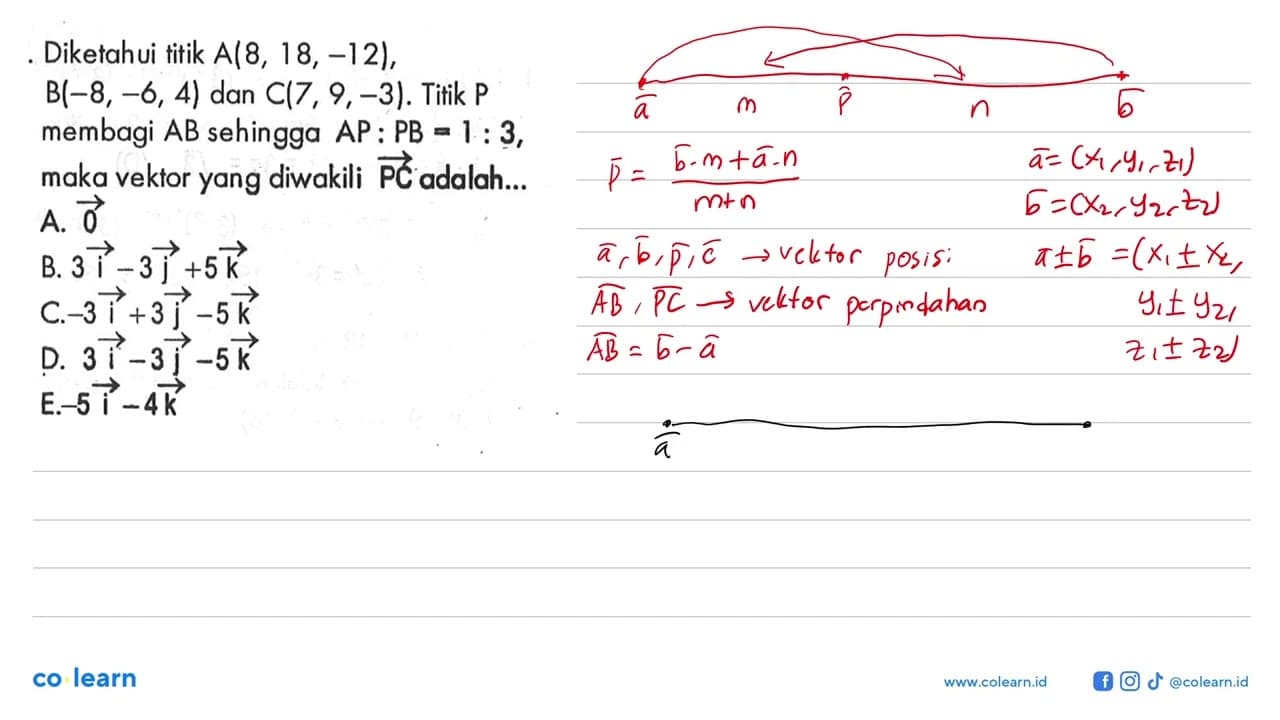 . Diketahui titik A(8, 18, −12),
B(−8, −6, 4) dan C(7, 9, −3). Titik P
membagi AB sehingga AP : PB = 1 : 3,
maka vektor yang diwakili PC⃗ adalah...
A. 0⃗
B. 3 i⃗ − 3 j⃗ + 5 k⃗
C. −3 i⃗ + 3 j⃗ − 5 k⃗
D. 3 i⃗ − 3 j⃗ − 5 k⃗
E. −5 i⃗ − 4 k⃗
a̅ m p̅ n b̅
p̅ = (b̅·m + a̅·n) / (m+n)
a̅ = (x₁, y₁, z₁)
b̅ = (x₂, y₂, z₂)
a̅, b̅, p̅, c̅ → vektor posisi
a̅ ± b̅ = (x₁ ± x₂,
y₁ ± y₂,
z₁ ± z₂)
A̅B̅, P̅C̅ → vektor perpindahan
A̅B̅ = b̅ − a̅
a̅
co learn
www.colearn.id
@colearn.id